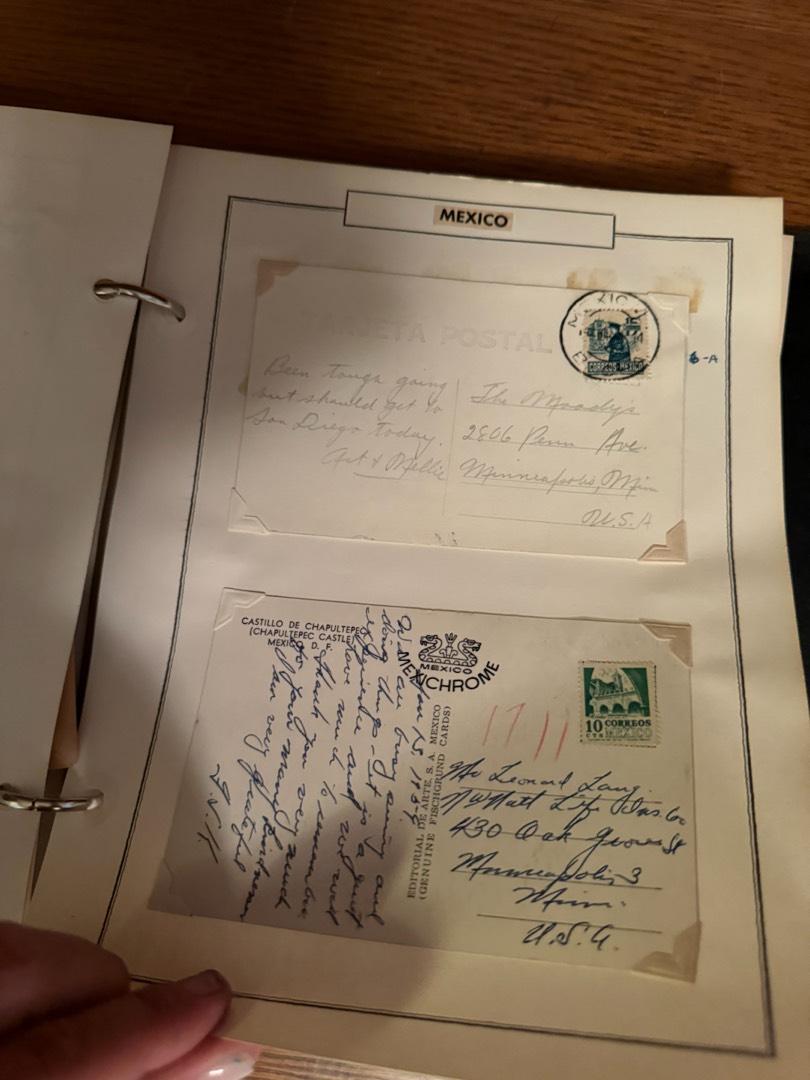 MEXICO
TARJETA POSTAL
MEXICO
CORREOS MEXICO
6-A
Been tough going
but should get to
San Diego today.
Art & Mellie
The Moodys
2806 Penn Ave.
Minneapolis, Minn
U.S.A
CASTILLO DE CHAPULTEPEC
(CHAPULTEPEC CASTLE)
MEXICO, D. F.
MEXICO
MEXICHROME
EDITORIAL DE ARTE, S. A. MEXICO
(GENUINE FISCHGRUND CARDS)
10 CTS CORREOS MEXICO
1711
Jan 15
We are busy and
doing things - it is a great
experience and we
have much to remember
Thank you very much
for your many kindnesses
am very grateful
Mr Leonard Lang.
NWNatl Life Ins. Co
430 Oak Grove St
Minneapolis 3
Minn.
U.S.A.